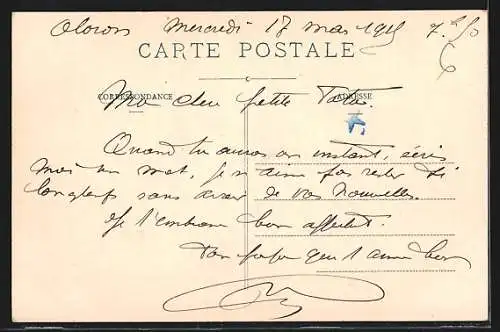 Oloron Mercredi 17 mars 1915 7h 50
CARTE POSTALE
CORRESPONDANCE ADRESSE
Ma chère petite
Quand tu auras un instant, écris
moi un mot, je n'aime pas rester si
longtemps sans avoir de vos nouvelles.
Je t'embrasse bien affect.
Ton papa qui t'aime bien